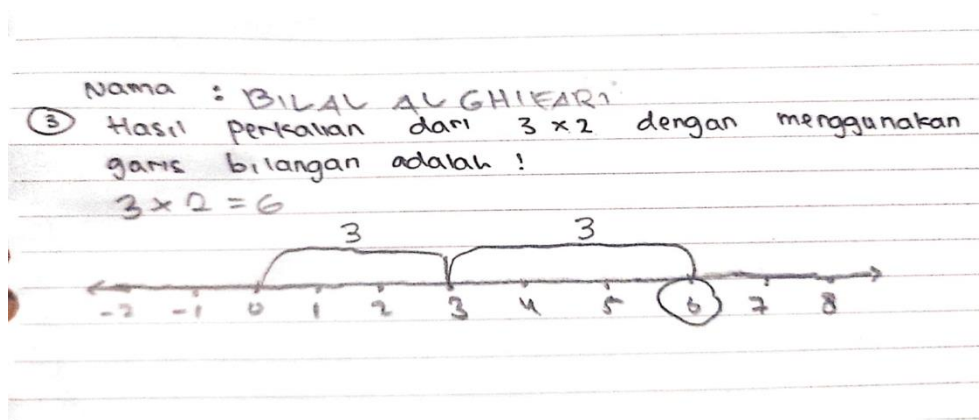 Nama : BILAL AL GHIFARI
③ Hasil perkalian dari 3 × 2 dengan menggunakan
garis bilangan adalah !
3 × 2 = 6
3 3
-2 -1 0 1 2 3 4 5 6 7 8